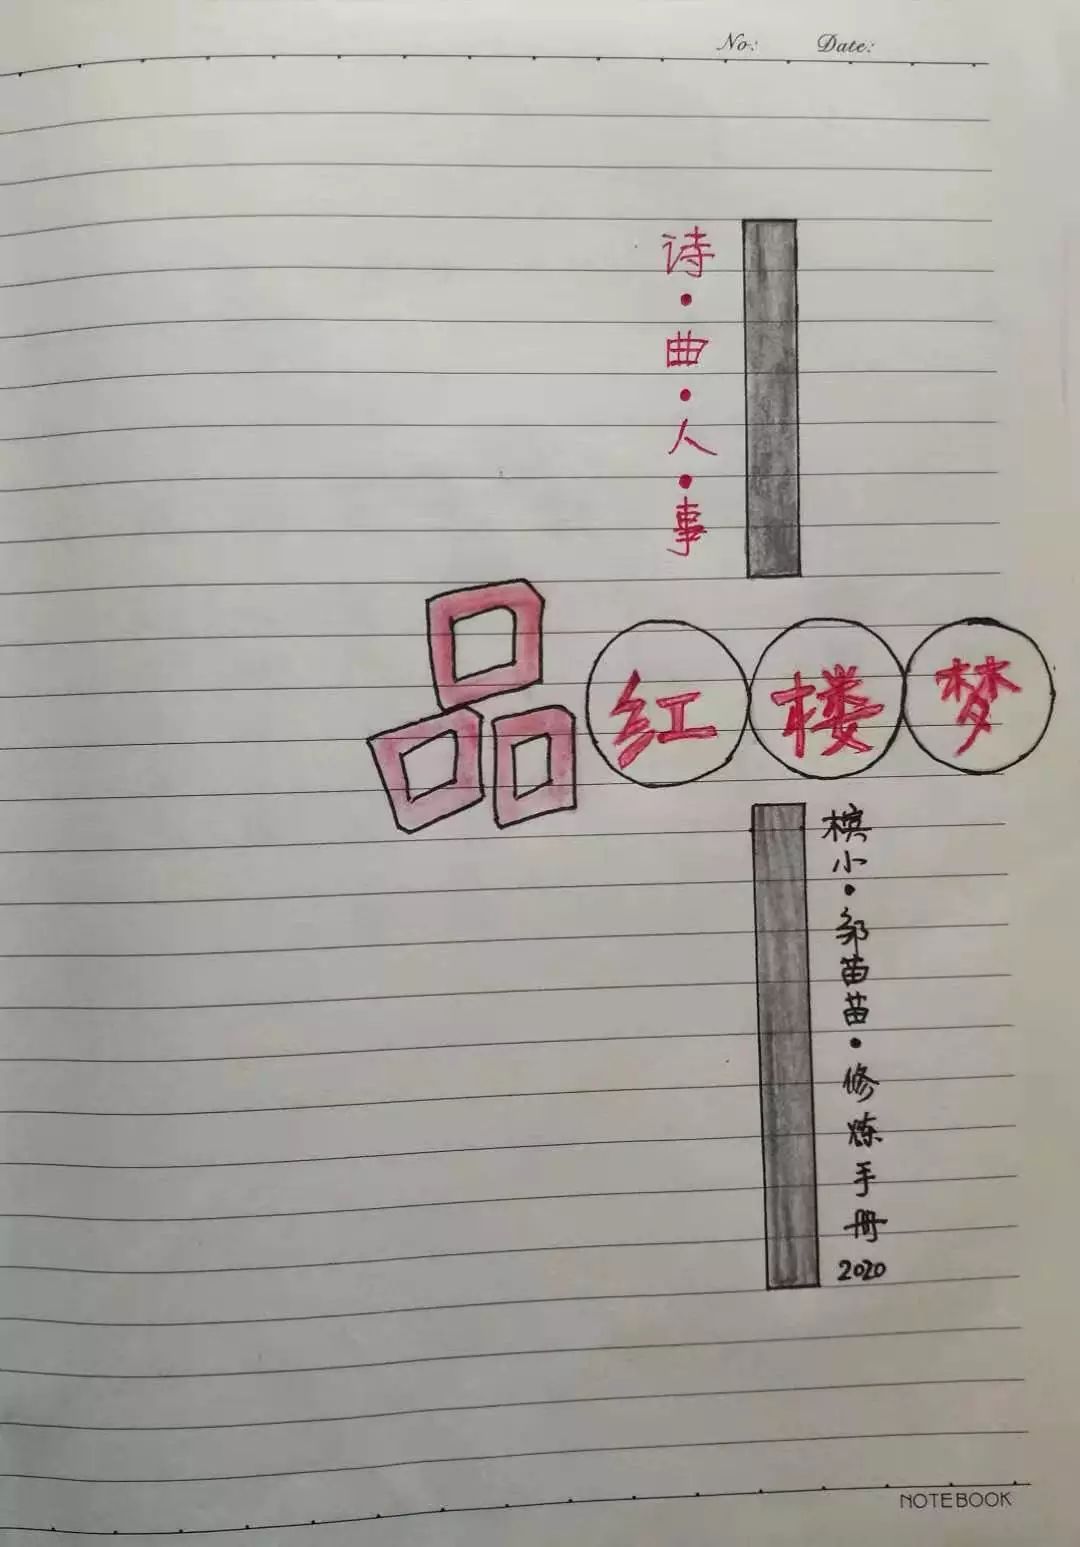 No: Date:
诗·曲·人·事
品红楼梦
槟小·邹苗苗·修炼手册2020
NOTEBOOK